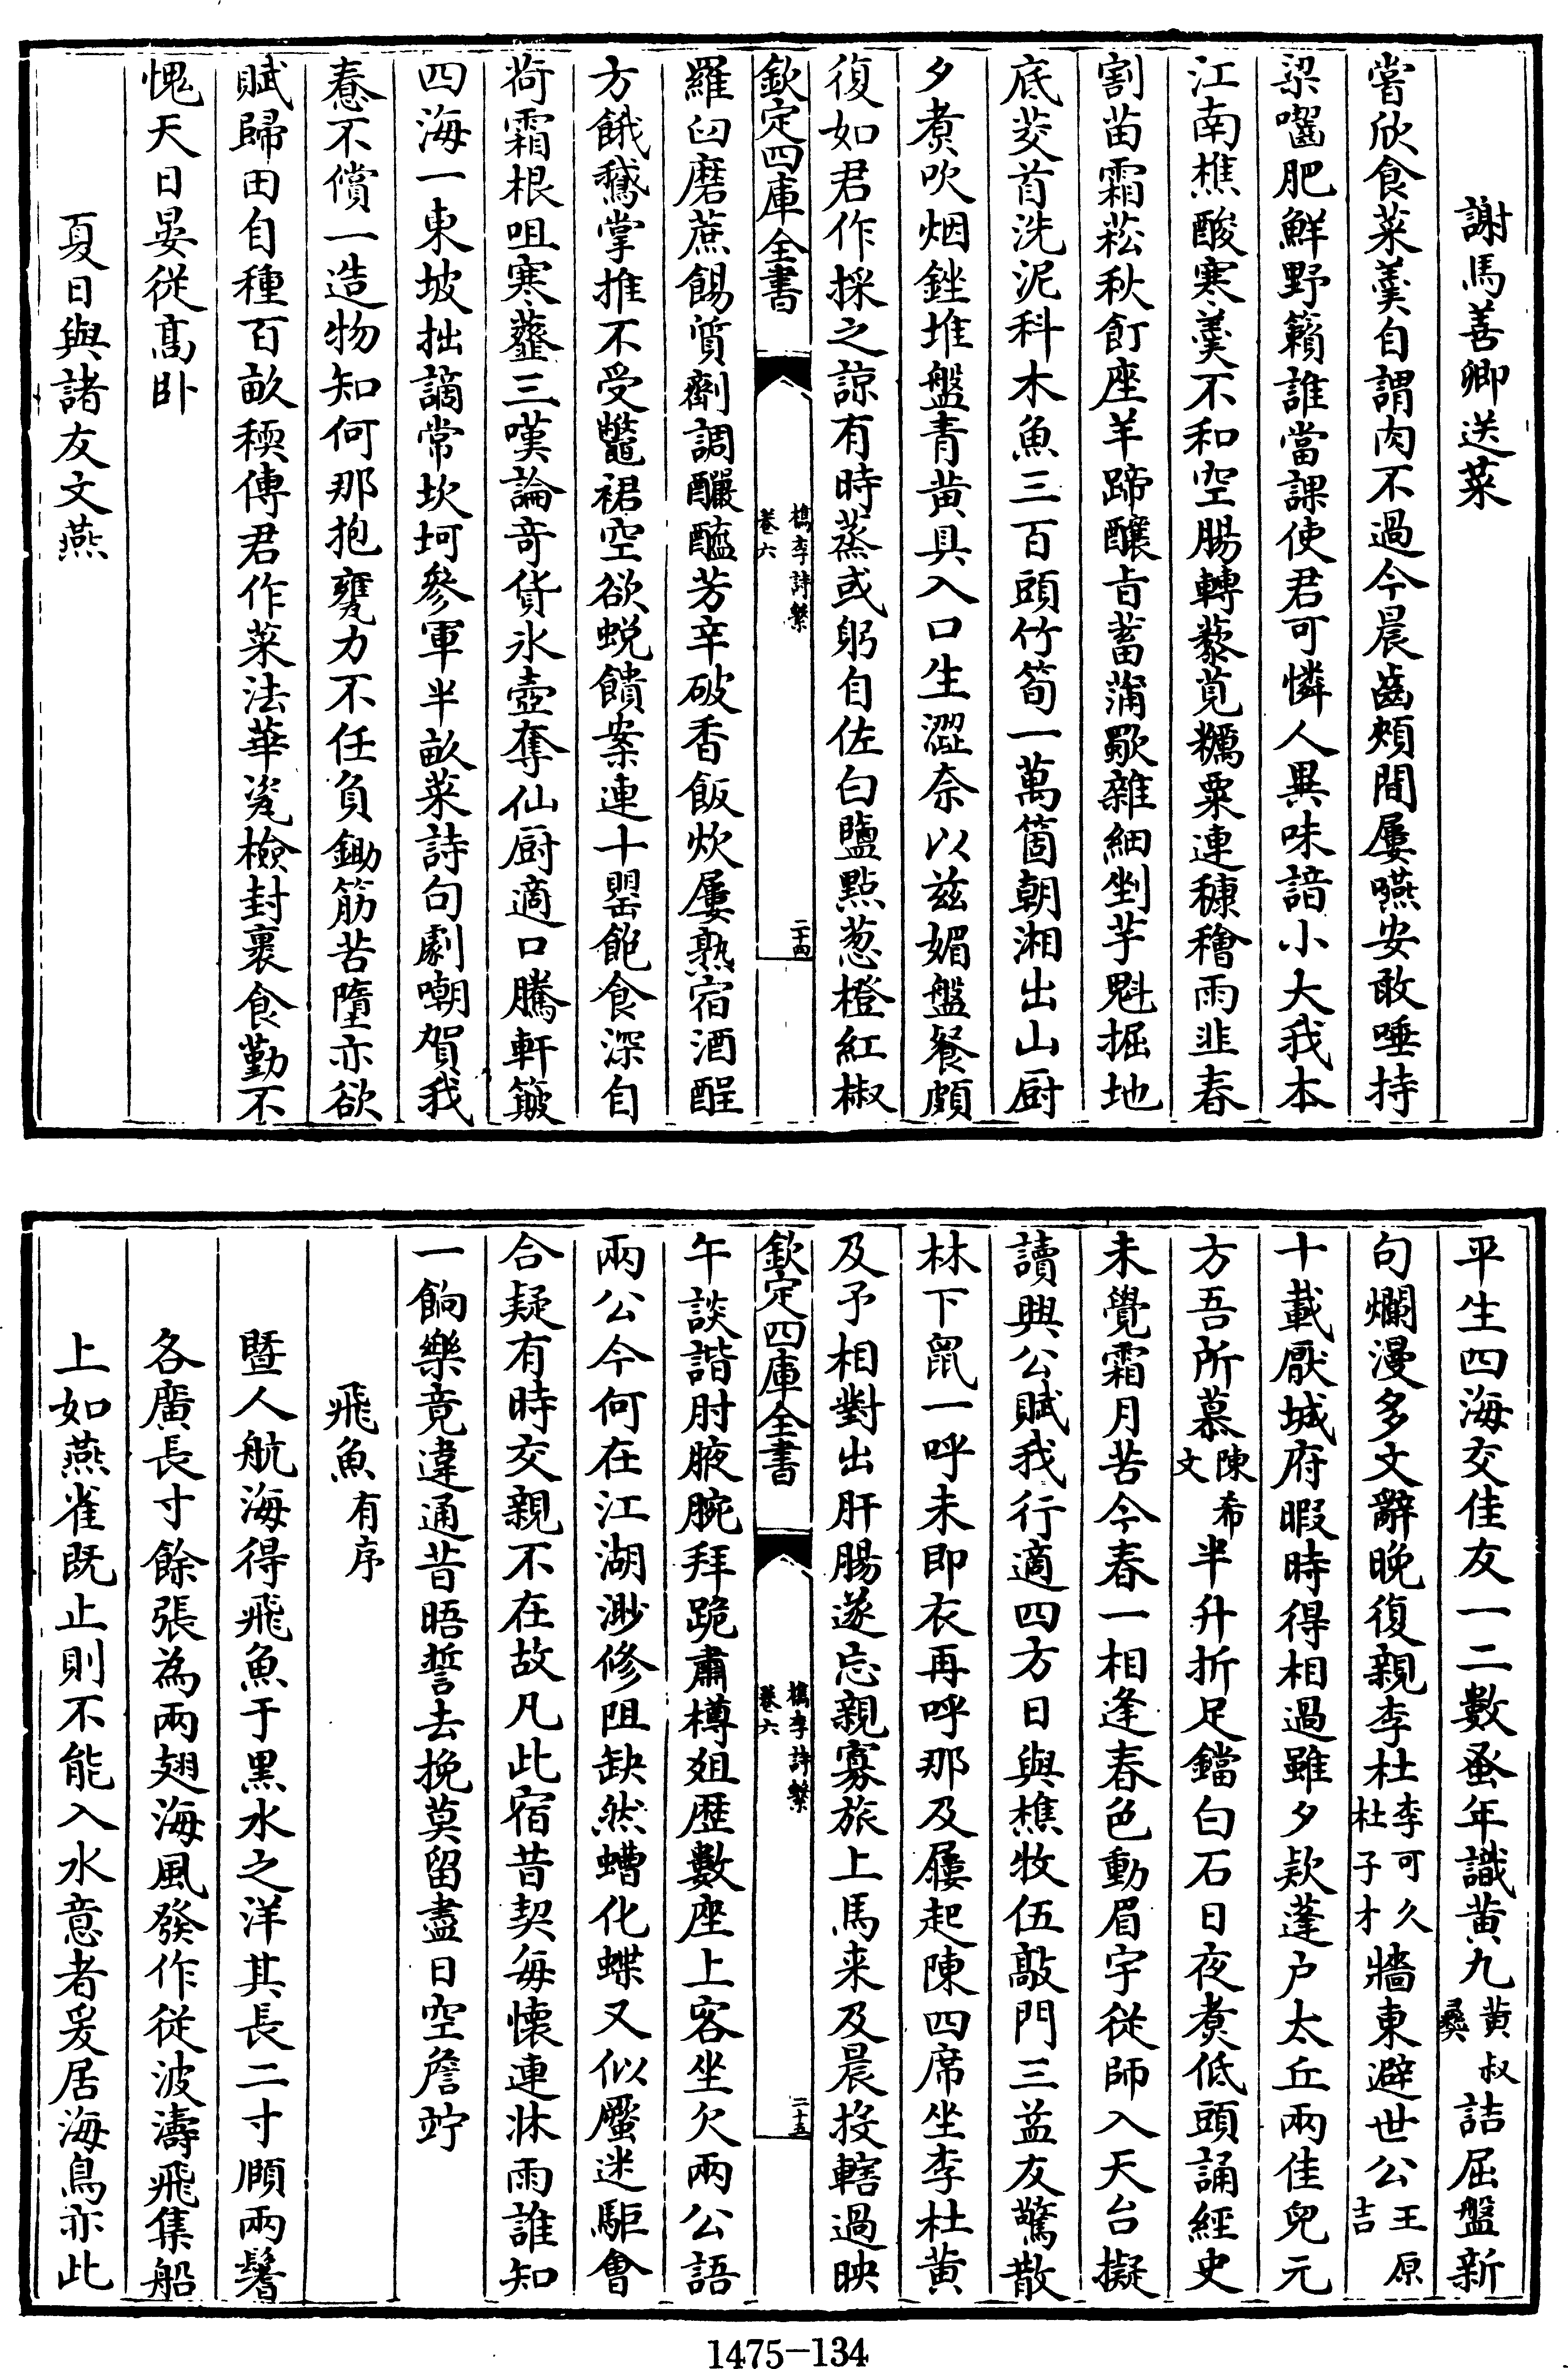 謝馬善卿送菜
嘗欣食菜羹自謂肉不過今晨齒頰間屢嚥安敢唾持
粱囓肥鮮野籟誰當課使君可憐人異味諳小大我本
江南樵酸寒羹不和空腸轉藜莧糲粟連穅穭雨韭春
割苗霜菘秋飣座羊蹄釀㫖蓄蒲歜雜細剉芋魁掘地
底茭首洗泥科木魚三百頭竹筍一萬箇朝湘出山厨
夕煮吹烟銼堆盤青黄具入口生澀奈以兹媚盤餐頗
復如君作採之諒有時蒸或躬自佐白鹽點葱橙紅椒
欽定四庫全書
檇李詩繫
卷六
二十四
羅臼磨蔗餳質劑調釅醯芳辛破香飯炊屢熟宿酒酲
方餓鵝掌推不受鼈裙空欲蜕饋案連十罌飽食深自
荷霜根咀寒虀三嘆論奇貨氷壺奪仙厨適口騰軒簸
四海一東坡拙謫常坎坷參軍半畝菜詩句劇嘲賀我
惷不償一造物知何那抱甕力不任負鋤筋苦墮亦欲
賦歸田自種百畝稬傳君作菜法華牋檢封裹食勤不
愧天日晏從髙卧
夏日與諸友文燕
平生四海交佳友一二數蚤年識黄九黄叔彛詰屈盤新
句爛漫多文辭晚復親李杜李可久杜子才牆東避世公王原吉
十載厭城府暇時得相過雖夕欵蓬户太丘兩佳兒元
方吾所慕陳希文半升折足鐺白石日夜煮低頭誦經史
未覺霜月苦今春一相逢春色動眉宇從師入天台擬
讀興公賦我行適四方日與樵牧伍敲門三益友驚散
林下䑕一呼未即衣再呼那及屨起陳四席坐李杜黄
及予相對出肝腸遂忘親寡旅上馬来及晨投轄過映
欽定四庫全書
檇李詩繫
卷六
二十五
午談諧肘腋腕拜跪肅樽爼歴數座上客坐欠兩公語
兩公今何在江湖渺修阻缺然螬化蝶又似蟨迷駏㑹
合疑有時交親不在故凡此宿昔契每懷連牀雨誰知
一餉樂竟違通昔晤誓去挽莫留盡日空詹竚
飛魚有序
暨人航海得飛魚于黒水之洋其長二寸頥兩鬐
各廣長寸餘張為兩翅海風發作從波濤飛集船
上如燕雀既止則不能入水意者爰居海鳥亦此
1475-134